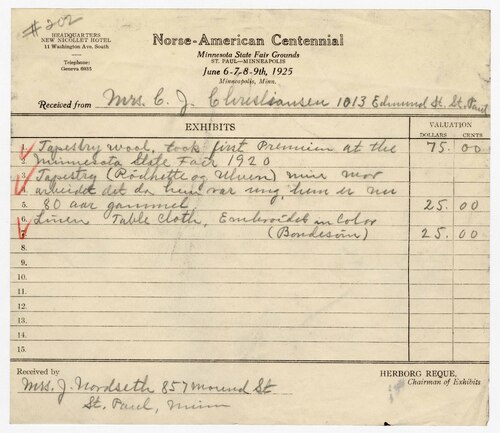 #202
HEADQUARTERS
NEW NICOLLET HOTEL
11 Washington Ave. South
Telephone:
Geneva 6835
Norse-American Centennial
Minnesota State Fair Grounds
ST. PAUL—MINNEAPOLIS
June 6-7-8-9th, 1925
Minneapolis, Minn.
Received from Mrs. C. J. Christiansen 1013 Edmund St. St. Paul
EXHIBITS
VALUATION
DOLLARS CENTS
1. Tapestry wool, took first Premium at the 75. 00
2. Minnesota State Fair 1920
3. Tapestry (Rödhette og Ulven) min mor
4. arbeidet det da hun var ung, hun er nu
5. 80 aar gammel 25. 00
6. Linen Table Cloth, Embroidet in Color
7. (Bondesöm) 25. 00
8.
9.
10.
11.
12.
13.
14.
15.
Received by
Mrs. J. Nordseth 857 St
St. Paul, Minn
HERBORG REQUE,
Chairman of Exhibits